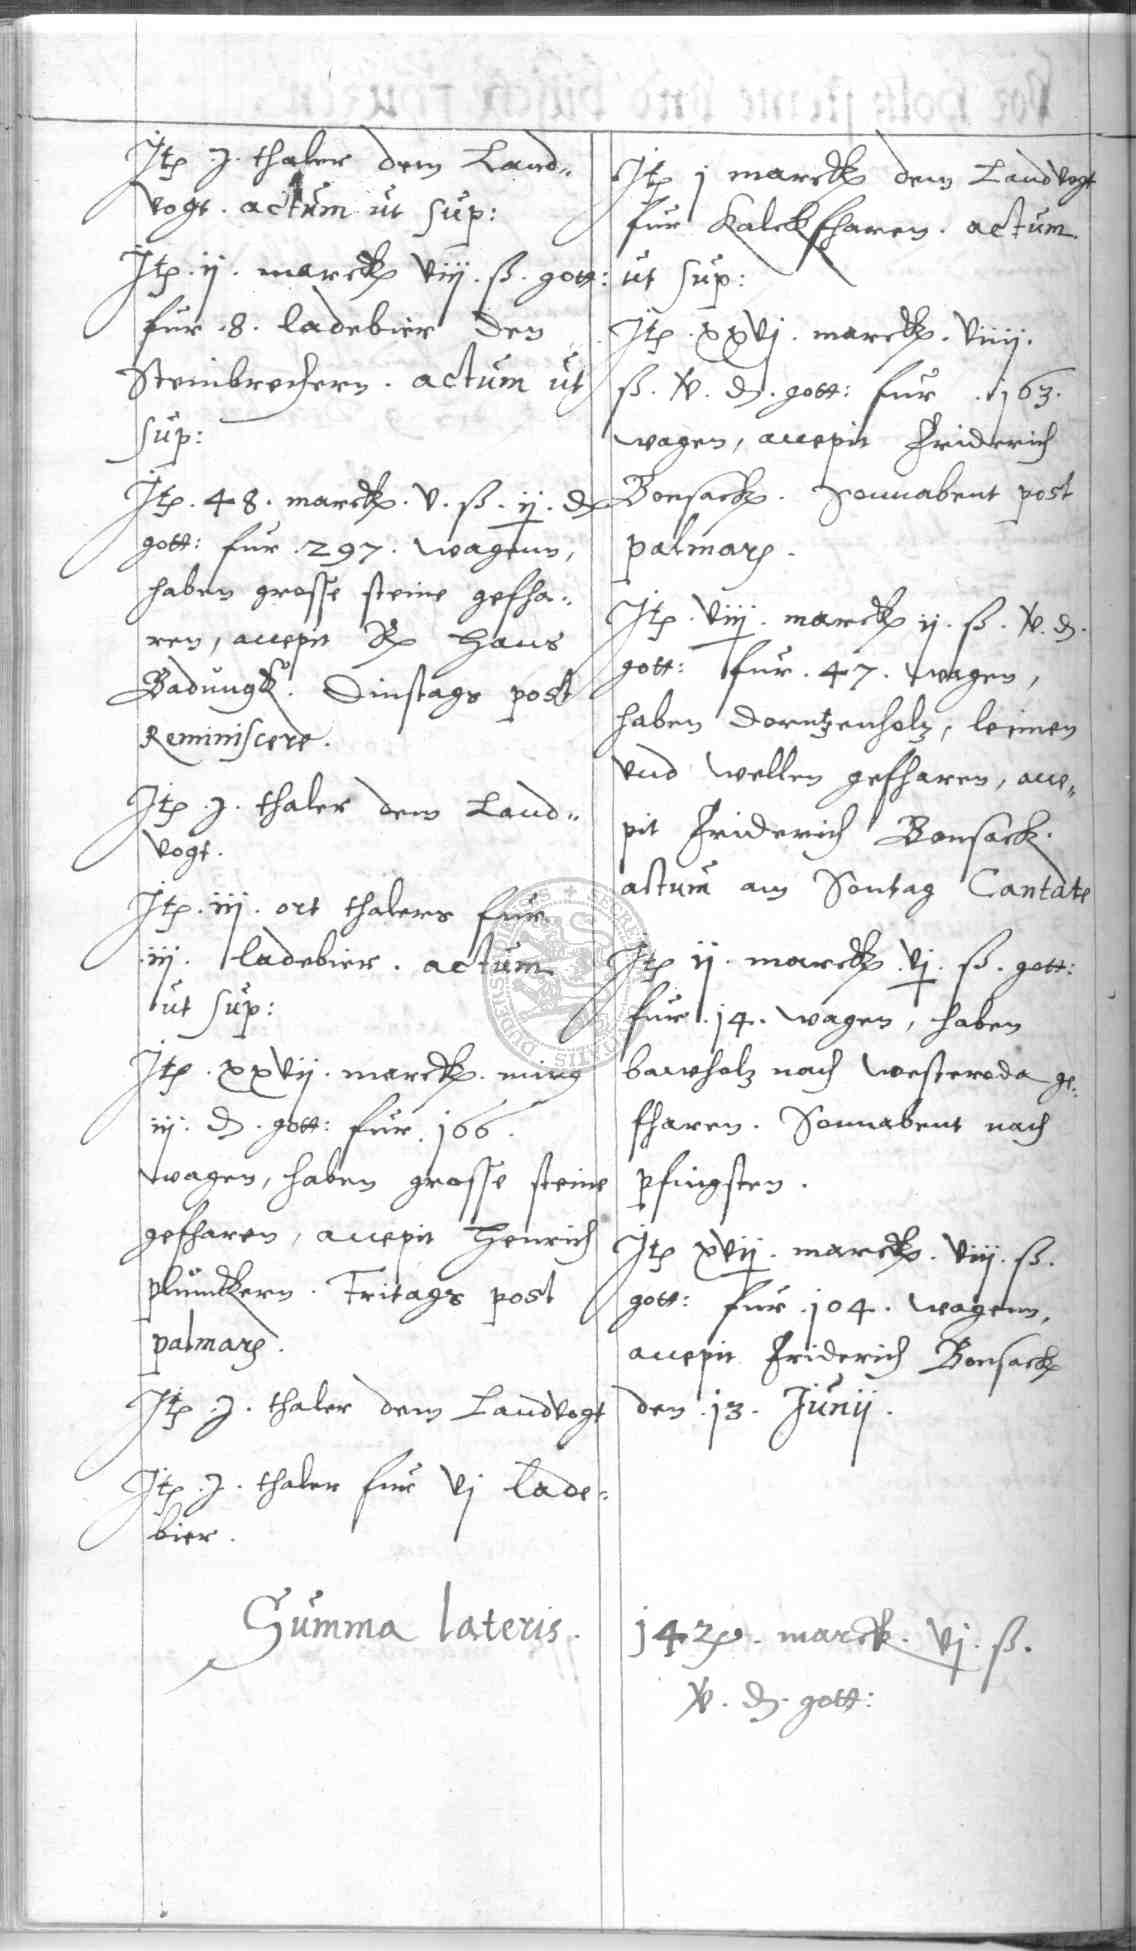 Jtem .j. thaler dem Land„
vogt. actum ut sup:
Jtem .ij. marck viij. ß. gott:
fur .8. ladebier den
Steinbrechern. actum ut
sup:
Jtem .48. marck. v. ß. ij. d
gott: fur .297. wagenn,
haben grosse steine gefha„
ren, accepit Hans
Badungk. Dinstags post
Reminiscere.
Jtem .j. thaler dem Land„
vogt.
Jtem .iij. ort thalers fur
.iij. ladebier. actum
ut sup:
Jtem .xxvij. marck. ming
iij. d. gott: fur .166.
wagen, haben grosse steine
gefharen, accepit Henrich
plumckern. Fritags post
palmarum.
Jtem .j. thaler dem Landvogt
Jtem .j. thaler fur vj lade„
bier.
Jtem j marck dem Landvogt
fur Kalckfharen. actum
ut sup:
Jtem .xxvj. marck. viiij.
ß. d. gott: fur .163.
wagen, accepit Friderich
Bonsack. Sonnabent post
palmarum.
Jtem .viij. marck ij. ß. d.
gott: fur .47. wagen,
haben dorntzenholz, leimen
vnd wellen gefharen, acce„
pit Friderich Bonsack.
actum am Sontag Cantate
Jtem ij. marck .vj. ß. gott:
fur .14. wagen, haben
bawholz nach Westeroda ge„
fharen. Sonnabent nach
pfingsten.
Jtem xvij. marck. viij. ß.
gott: fur .104. wagenn,
accepit Friderich Bonsack
den .13. Junij.
Summa lateris. marck. vj. ß.
d. gott: